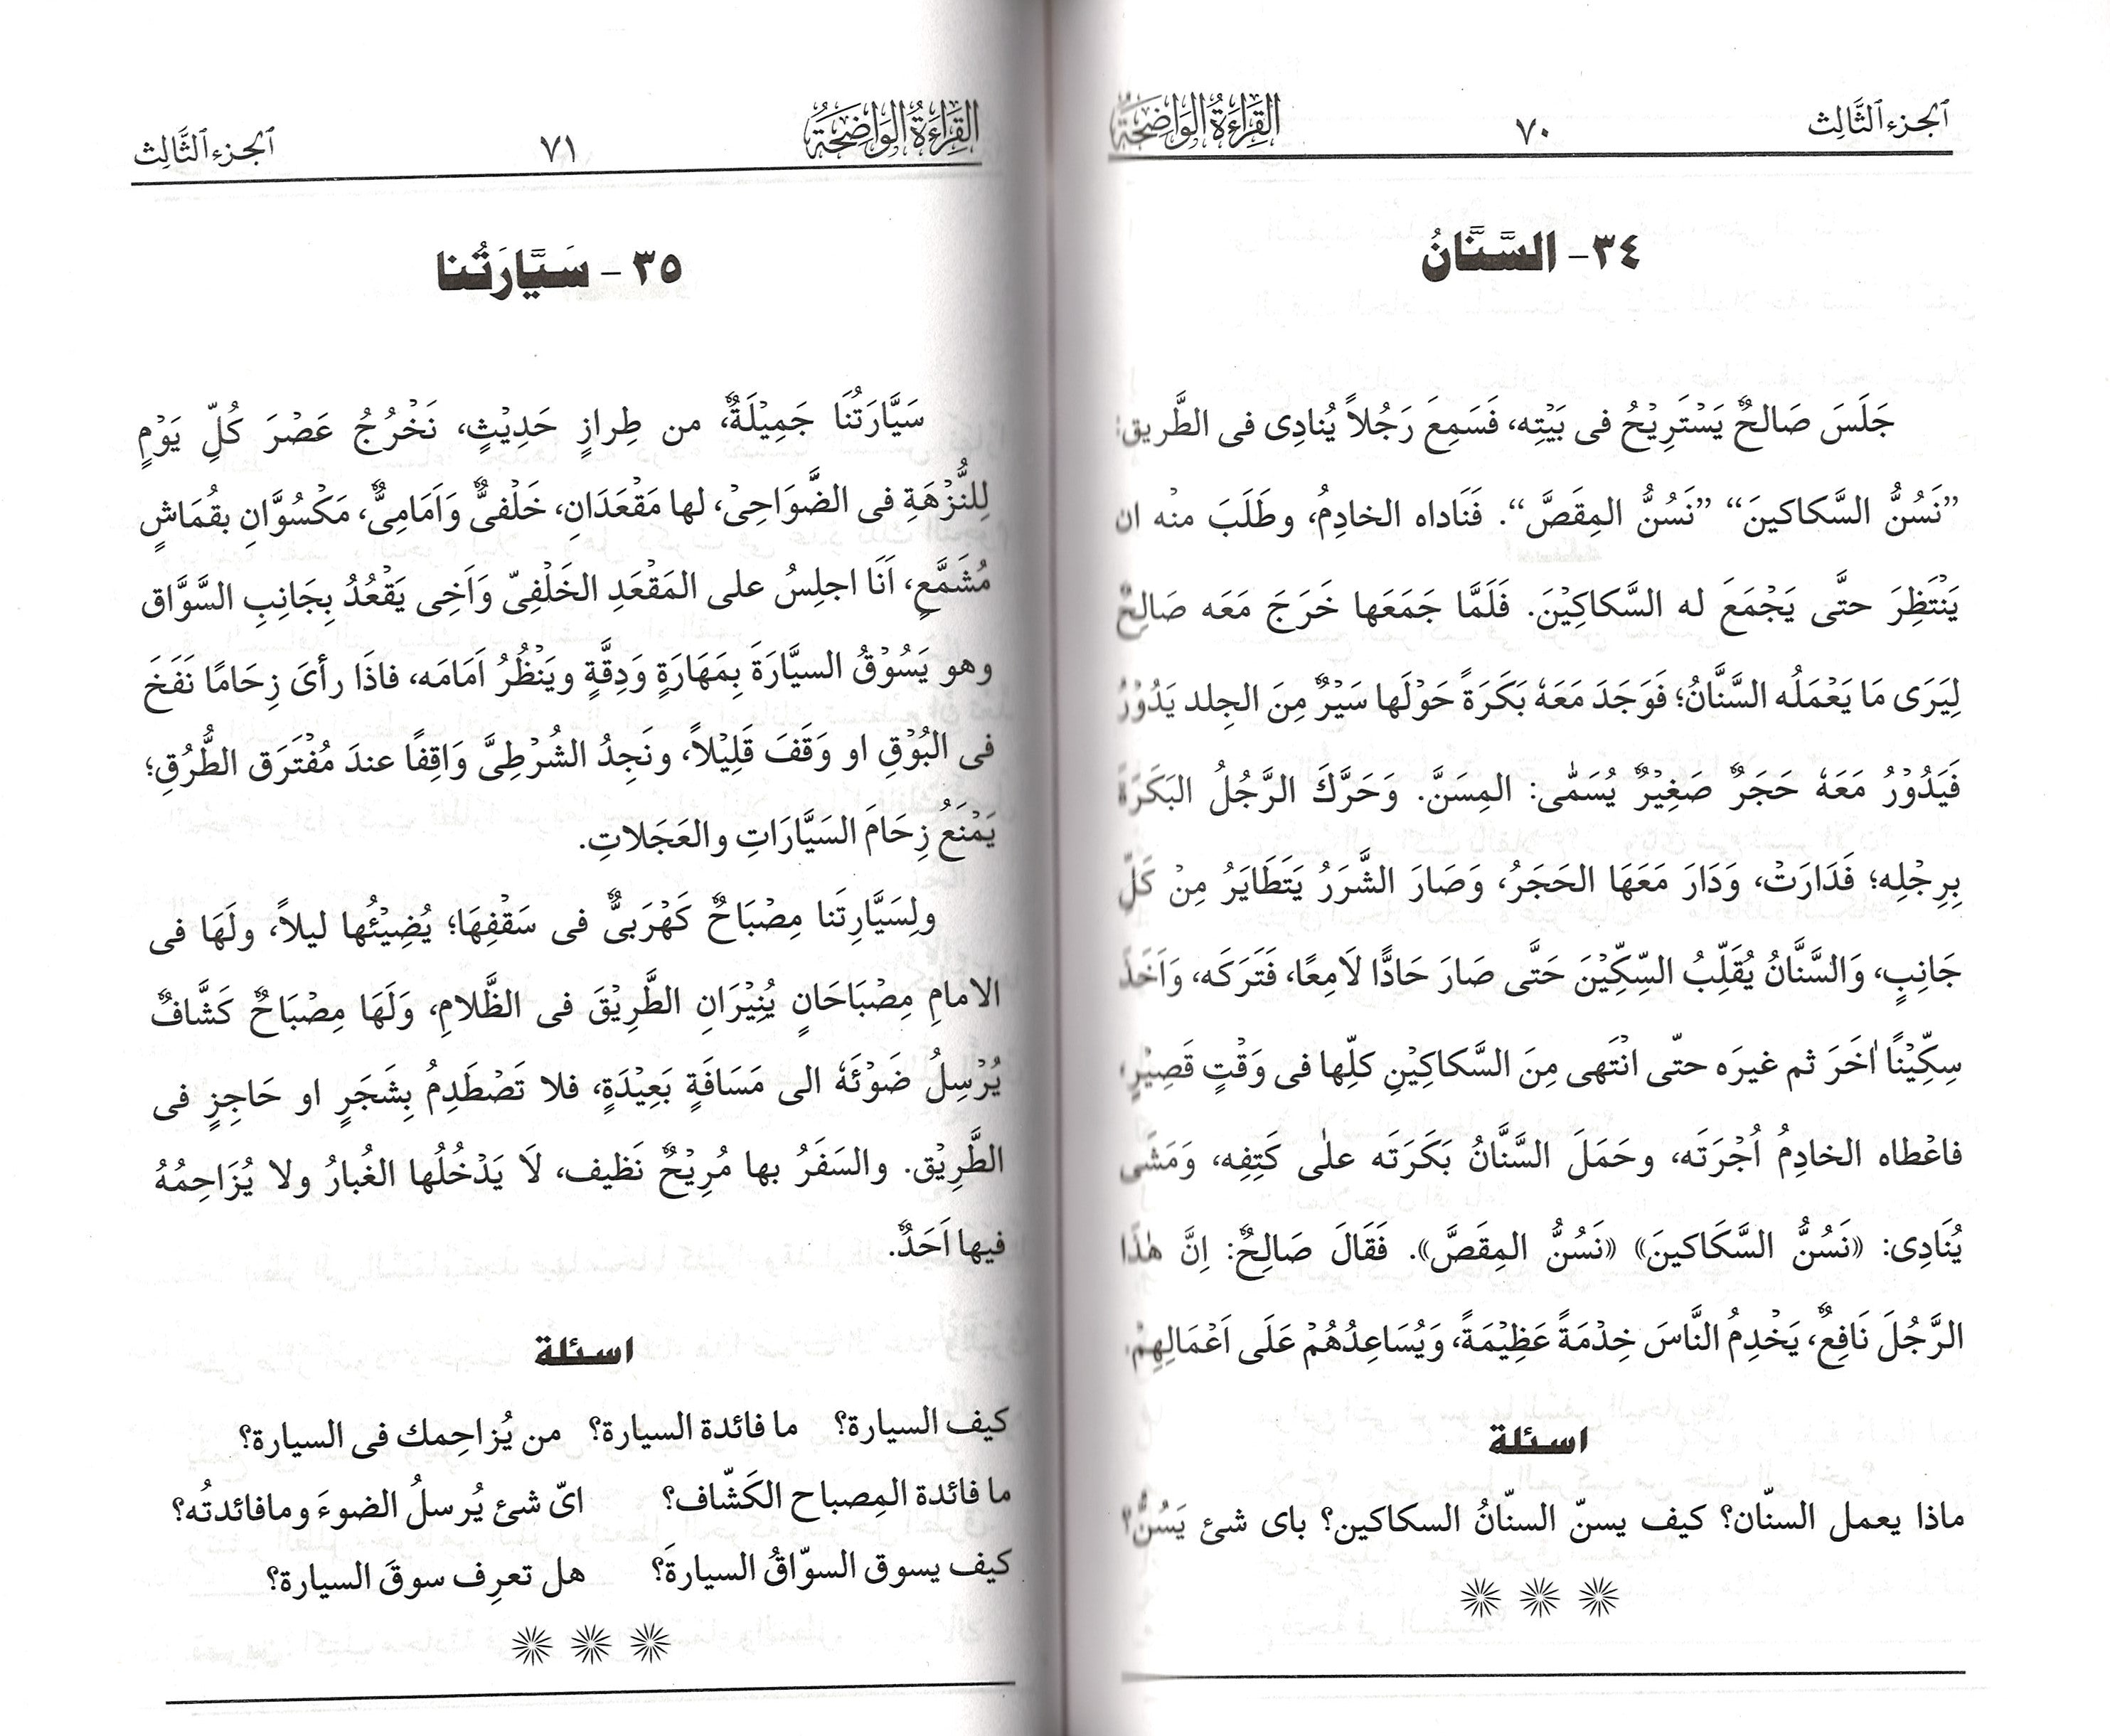 الجزء الثالث ٧٠ القراءة الواضحة
٣٤- السَّنَّانُ
جَلَسَ صَالحٌ يَسْتَرِيْحُ فى بَيْتِه، فَسَمِعَ رَجُلاً يُنادِى فى الطَّريق:
”نَسُنُّ السَّكاكينَ“ ”نَسُنُّ المِقَصَّ“. فَنَاداه الخادِمُ، وطَلَبَ منْه ان
يَنْتَظِرَ حتَّى يَجْمَعَ له السَّكاكِيْنَ. فَلَمَّا جَمَعَها خَرَجَ مَعَه صَالِحٌ
لِيَرَى مَا يَعْمَلُه السَّنَّانُ؛ فَوَجَدَ مَعَهٗ بَكَرَةً حَوْلَها سَيْرٌ مِنَ الجِلد يَدُوْرُ
فَيَدُوْرُ مَعَهٗ حَجَرٌ صَغِيْرٌ يُسَمّٰى: المِسَنَّ. وَحَرَّكَ الرَّجُلُ البَكَرَةَ
بِرِجْلِه؛ فَدَارَتْ، وَدَارَ مَعَهَا الحَجَرُ، وَصَارَ الشَّرَرُ يَتَطَايَرُ مِنْ كَلِّ
جَانِبٍ، وَالسَّنَّانُ يُقَلِّبُ السِّكِّيْنَ حَتَّى صَارَ حَادًّا لَامِعًا، فَتَرَكَه، وَاَخَذَ
سِكِّيْنًا اٰخَرَ ثم غيرَه حتّى انْتَهى مِنَ السَّكاكِيْنِ كلِّها فى وَقْتٍ قَصِيْرٍ،
فاعْطاه الخادِمُ اُجْرَتَه، وحَمَلَ السَّنَّانُ بَكَرَتَه علٰى كَتِفِه، وَمَشَى
يُنَادِى: «نَسُنُّ السَّكَاكينَ» «نَسُنُّ المِقَصَّ». فَقَالَ صَالِحٌ: اِنَّ هٰذَا
الرَّجُلَ نَافِعٌ، يَخْدِمُ النَّاسَ خِدْمَةً عَظِيْمَةً، وَيُسَاعِدُهُمْ عَلَى اَعْمَالِهِمْ.
اسئلة
ماذا يعمل السنّان؟ كيف يسنّ السنّانُ السكاكين؟ باى شئ يَسُنُّ؟
القراءة الواضحة ٧١ الجزء الثالث
٣٥ - سَيَّارَتُنا
سَيَّارَتُنَا جَمِيْلَةٌ، من طِرازٍ حَدِيْثٍ، نَخْرُجُ عَصْرَ كُلِّ يَوْمٍ
لِلنُّزْهَةِ فى الضَّوَاحِىْ، لها مَقْعَدَانِ، خَلْفىٌّ وَاَمَامِىٌّ، مَكْسُوَّانِ بقُمَاشٍ
مُشَمَّعٍ، اَنَا اجلِسُ على المَقْعَدِ الخَلْفِىّ وَاَخِى يَقْعُدُ بِجَانِبِ السَّوَّاق
وهو يَسُوْقُ السيَّارَةَ بِمَهَارَةٍ وَدِقَّةٍ ويَنْظُرُ اَمَامَه، فاذَا رأىَ زِحَامًا نَفَخَ
فى البُوْقِ او وَقَفَ قَلِيْلاً، ونَجِدُ الشُرْطِىَّ وَاقِفًا عندَ مُفْتَرَق الطُّرُقِ؛
يَمْنَعُ زِحَامَ السَيَّارَاتِ والعَجَلاتِ.
ولِسَيَّارِتَنا مِصْبَاحٌ كَهْرَبىٌّ فى سَقْفِهَا؛ يُضِيْئُها ليلاً، ولَهَا فى
الامامِ مِصْبَاحَانٍ يُنِيْرَانِ الطَّرِيْقَ فى الظَّلامِ، وَلَهَا مِصْبَاحٌ كَشَّافٌ
يُرْسِلُ ضَوْئَهٗ الى مَسَافَةٍ بَعِيْدَةٍ، فلا تَصْطَدِمُ بِشَجَرٍ او حَاجِزٍ فى
الطَّرِيْق. والسَفَرُ بها مُرِيْحٌ نَظيف، لَا يَدْخُلُها الغُبارُ ولا يُزَاحِمُهُ
فيها اَحَدٌ.
اسئلة
كيف السيارة؟ ما فائدة السيارة؟ من يُزاحِمك فى السيارة؟
ما فائدة المِصباح الكَشّاف؟ اىّ شئ يُرسلُ الضوءَ ومافائدتُه؟
كيف يسوق السوّاقُ السيارةَ؟ هل تعرِف سوقَ السيارة؟